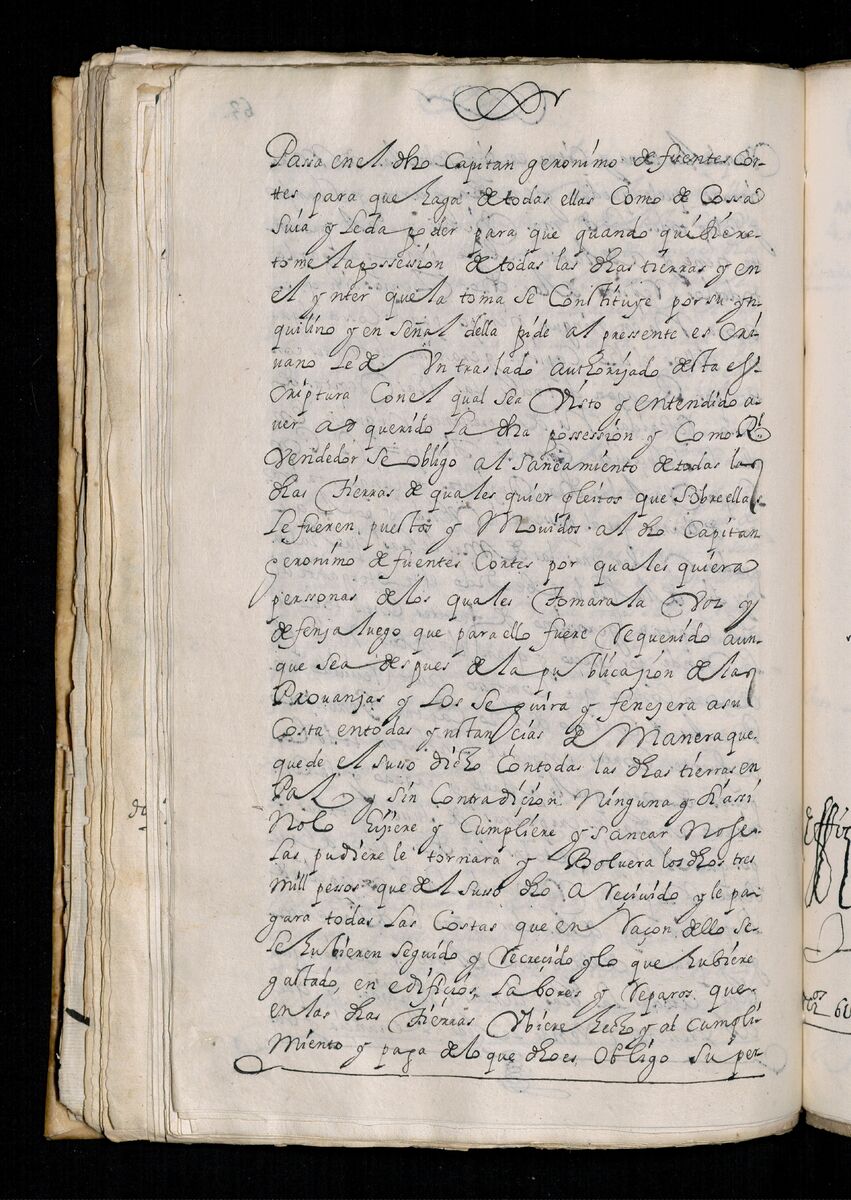 Passa en el dho Capitan geronimo de fuentes Cor-
ttes para que haga de todas ellas Como de Cossa
suia y le da poder para que quando quisiere
tome la possession de todas las dhas tierras y en
el ynter que la toma se Constituye por su yn-
quilino y en señal della pide al pressente es Cri-
uano le de Vn traslado authorijado desta es-
criptura Con el qual sea Visto y entendido a-
uer adquerido la dha possession y Como Rl
Vendedor se obligo al saneamiento de todas las
dhas tierras de quales quier pleitos que sobre ellas
le fueren puestos y Mouidos al dho Capitan
geronimo de fuentes Cortes por quales quiera
perssonas de los quales tomara la Voz y
defenja luego que para ello fuere Requerido aun-
que sea despues de la publicajion de las
Prouanjas y los seguira y fenejera a su
Costa en todas ynstancias de Manera que
quede el susso dicho Con todas las dhas tierras en
Paz y sin Contradiçion Ninguna y si assi
No lo hijiere y Cumpliere y sanear No se
las pudiere le tornara y Boluera los dhos tres
mill pesos que del susso dho a Reçiuido y le pa-
gara todas las Costas que en Raçon dello se
le hubieren seguido y Recrecido y lo que hubiere
gastado, en edificios, labores y Reparos que
en las dhas tierras Vbiere hecho y al Cumpli-
miento y paga de lo que dho es Obligo su per-
63